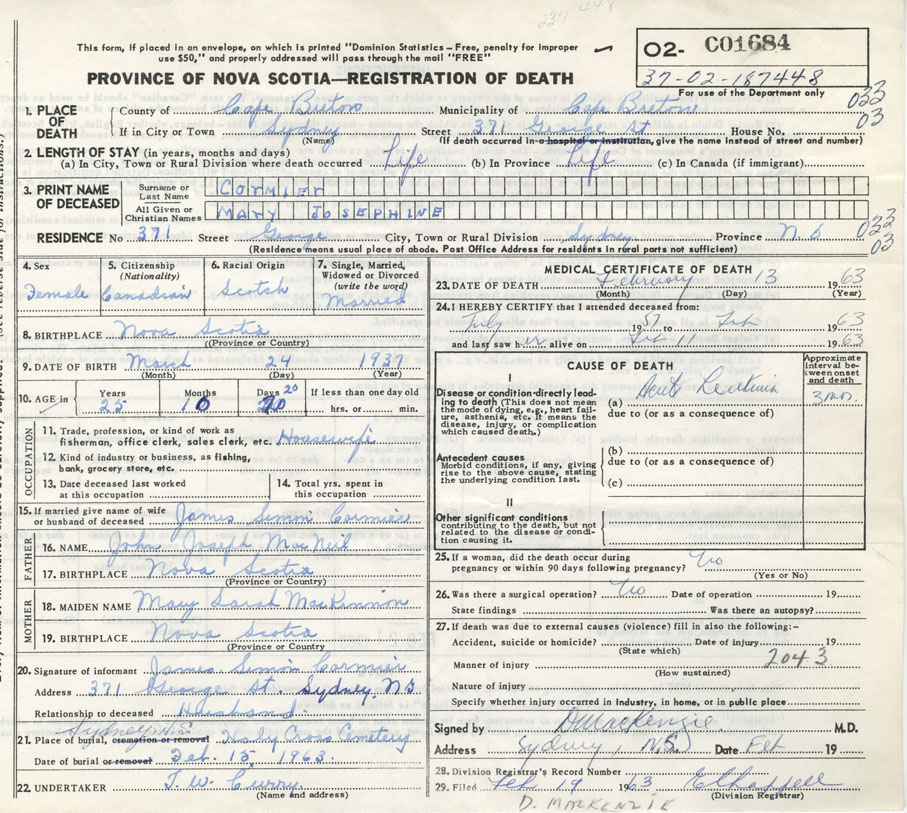 This form, if placed in an envelope, on which is printed "Dominion Statistics – Free, penalty for improper
use $50," and properly addressed will pass through the mail "FREE"
O2- CO1684
37-02-187448
For use of the Department only
PROVINCE OF NOVA SCOTIA—REGISTRATION OF DEATH
1. PLACE OF DEATH
County of Cape Breton Municipality of Cape Breton
If in City or Town Sydney Street 371 George St House No.
(Name) (If death occurred in a hospital or institution, give the name instead of street and number)
033
03
2. LENGTH OF STAY (in years, months and days)
(a) In City, Town or Rural Division where death occurred Life (b) In Province Life (c) In Canada (if immigrant)
3. PRINT NAME OF DECEASED
Surname or Last Name CORMIER
All Given or Christian Names MARY JOSEPHINE
RESIDENCE No 371 Street George City, Town or Rural Division Sydney Province N S
(Residence means usual place of abode. Post Office Address for residents in rural parts not sufficient)
033
03
4. Sex Female
5. Citizenship (Nationality) Canadian
6. Racial Origin Scotch
7. Single, Married, Widowed or Divorced (write the word) Married
8. BIRTHPLACE Nova Scotia
(Province or Country)
9. DATE OF BIRTH March 24 1937
(Month) (Day) (Year)
10. AGE in Years 25 Months 10 Days 20 If less than one day old hrs. or min.
OCCUPATION
11. Trade, profession, or kind of work as fisherman, office clerk, sales clerk, etc. Housewife
12. Kind of industry or business, as fishing, bank, grocery store, etc.
13. Date deceased last worked at this occupation
14. Total yrs. spent in this occupation
15. If married give name of wife or husband of deceased James Simon Cormier
FATHER
16. NAME John Joseph MacNeil
17. BIRTHPLACE Nova Scotia
(Province or Country)
MOTHER
18. MAIDEN NAME Mary Sarah MacKinnon
19. BIRTHPLACE Nova Scotia
(Province or Country
20. Signature of informant James Simon Cormier
Address 371 George St. Sydney. N.S
Relationship to deceased Husband.
Sydney N.S.
21. Place of burial, cremation or removal Holy Cross Cemetery
Date of burial or removal Feb. 15, 1963.
22. UNDERTAKER T. W. Curry
(Name and address)
MEDICAL CERTIFICATE OF DEATH
23. DATE OF DEATH February 13 1963
(Month) (Day) (Year)
24. I HEREBY CERTIFY that I attended deceased from:
July 1957 to Feb 1963
and last saw her alive on Feb 11 1963
CAUSE OF DEATH
Approximate interval between onset and death
I
Disease or condition directly leading to death (This does not mean the mode of dying, e.g., heart failure, asthenia, etc. It means the disease, injury, or complication which caused death.)
(a) Acute Leukemia 3 mos.
due to (or as a consequence of)
Antecedent causes
Morbid conditions, if any, giving rise to the above cause, stating the underlying condition last.
(b)
due to (or as a consequence of)
(c)
II
Other significant conditions
contributing to the death, but not related to the disease or condition causing it.
25. If a woman, did the death occur during pregnancy or within 90 days following pregnancy? No
(Yes or No)
26. Was there a surgical operation? No Date of operation 19
State findings Was there an autopsy?
27. If death was due to external causes (violence) fill in also the following:–
Accident, suicide or homicide? Date of injury 19
(State which)
Manner of injury 2043
(How sustained)
Nature of injury
Specify whether injury occurred in industry, in home, or in public place
Signed by D Mackenzie M.D.
Address Sydney, N.S. Date Feb 19
28. Division Registrar's Record Number
29. Filed Feb 19 1963 E Chappell
(Division Registrar)
D. MACKENZIE